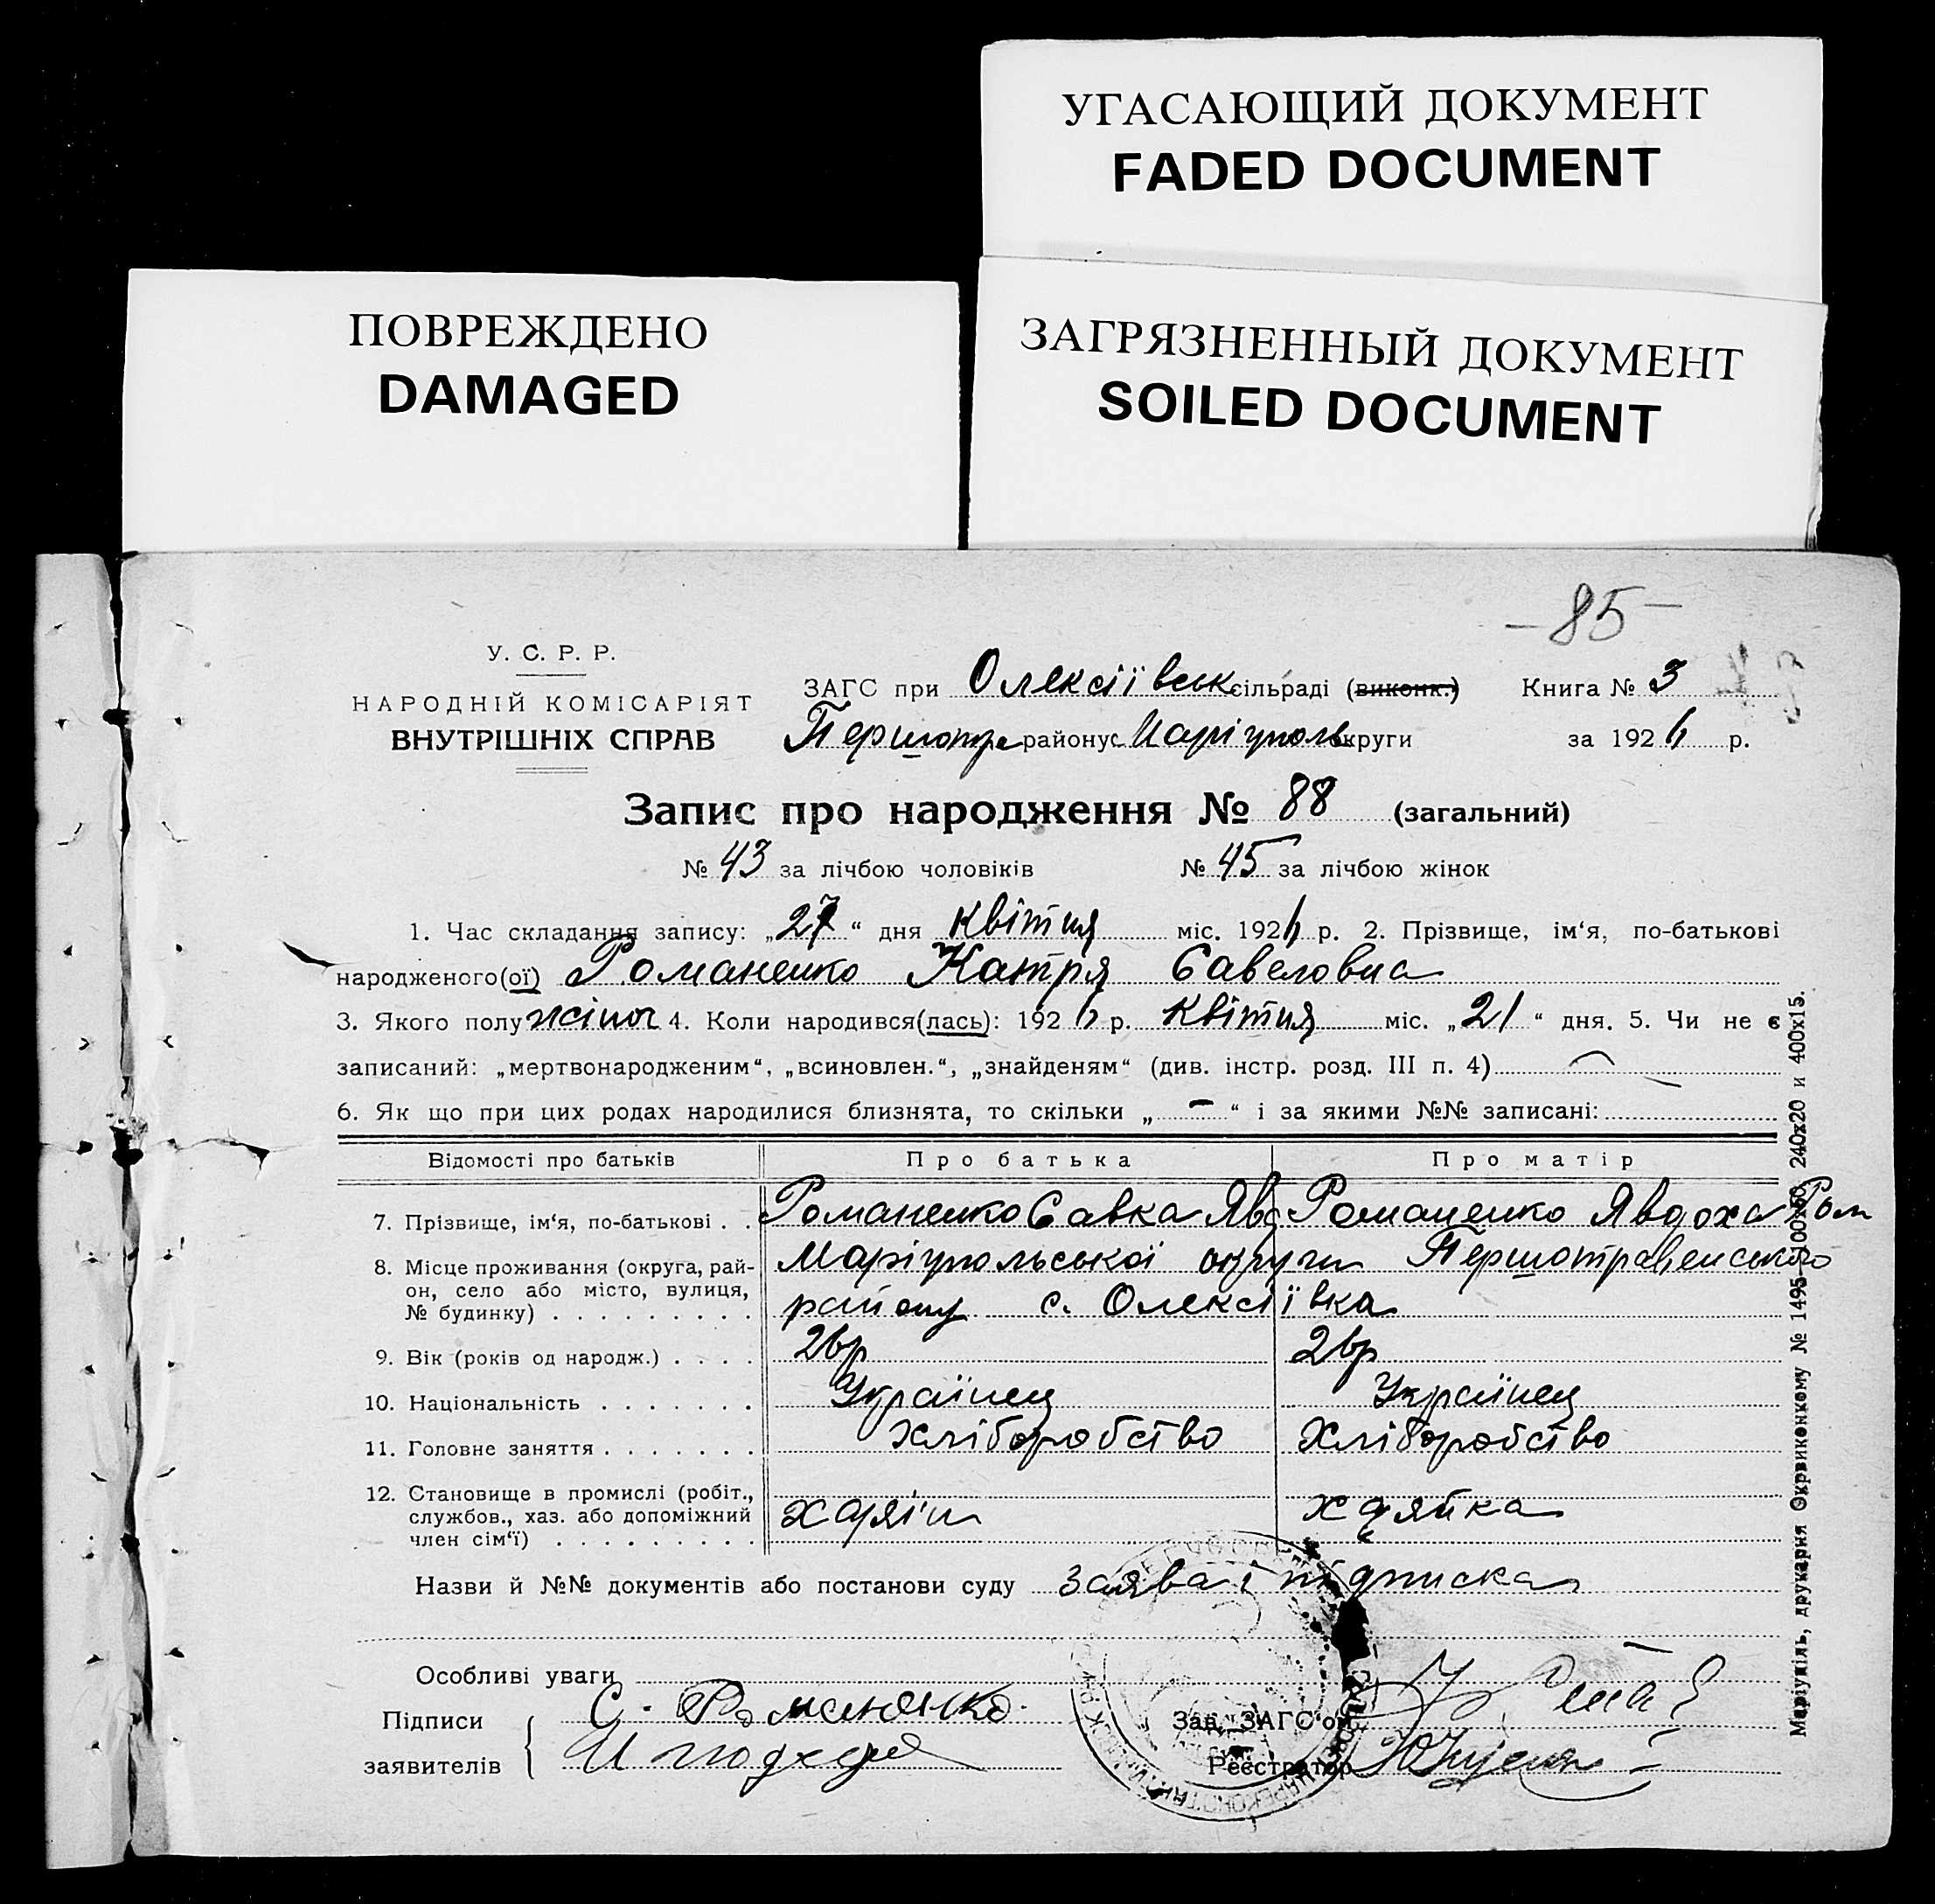 УГАСАЮЩИЙ ДОКУМЕНТ
FADED DOCUMENT
ПОВРЕЖДЕНО
DAMAGED
ЗАГРЯЗНЕННЫЙ ДОКУМЕНТ
SOILED DOCUMENT
– 85 –
У. С. Р. Р.
НАРОДНІЙ КОМІСАРІЯТ
ВНУТРІШНІХ СПРАВ
ЗАГС при Олексіївськ сільраді (виконк.) Книга № 3
Першотр районус Маріуполь округи за 1926 р.
Запис про народження № 88 (загальний)
№ 43 за лічбою чоловіків № 45 за лічбою жінок
1. Час складання запису: „27“ дня квітня міс. 1926 р. 2. Прізвище, ім‘я, по-батькові
народженого(ої) Романенко Катря Савеловна
3. Якого полу жіноч 4. Коли народився(лась): 1926 р. квітня міс. „21“ дня. 5. Чи не є
записаний: „мертвонародженим“, „всиновлен.“, „знайденям“ (див. інстр. розд. III п. 4)
6. Як що при цих родах народилися близнята, то скільки „ – “ і за якими №№ записані:
Відомості про батьків Про батька Про матір
7. Прізвище, ім‘я, по-батькові . . Романенко Савка Явд Романенко Явдоха Ром
8. Місце проживання (округа, рай-
он, село або місто, вулиця,
№ будинку) . . . . . . . . .
Маріупольської округи Першотравенського
району с. Олексіївка
9. Вік (років од народж.) . . . . 26р 26р
10. Національність . . . . . . . Українец Українец
11. Головне заняття . . . . . . . Хліборобство Хліборобство
12. Становище в промислі (робіт.,
службов., хаз. або допоміжний
член сім‘ї) . . . . . . . . .
хазяін хазяйка
Назви й №№ документів або постанови суду заява і підписка
Особливі уваги
Підписи
заявителів
С. Романенко
Зав. ЗАГС‘ом
Реєстратор
Маріупіль, друкарня Окрвиконкому № 1495—100х60 240х20 и 400х15.